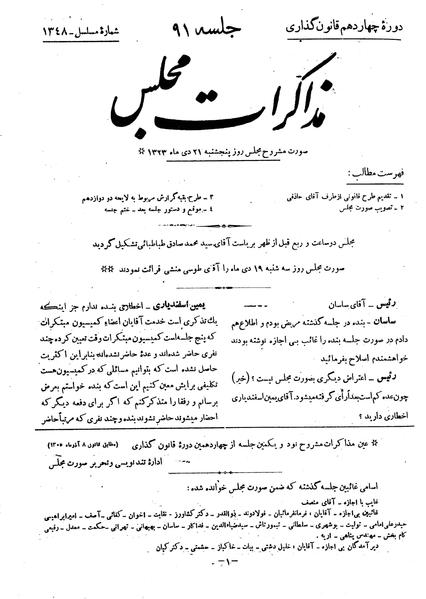 دورهٔ چهاردهم قانون گذاری
جلسه ۹۱
شمارهٔ مسلسل - ۱۳۴۸
مذاکرات مجلس
صورت مشروح مجلس روز پنجشنبه ۲۱ دی ماه ۱۳۲۳ *
فهرست مطالب:
۱ - تقدیم طرح قانونی از طرف آقای حاذقی
۲ - تصویب صورت مجلس
۳ - طرح بقیه گزارش مربوط به لایحه دو دوازدهم
۴ - موقع و دستور جلسه بعد - ختم جلسه
مجلس دو ساعت و ربع قبل از ظهر بریاست آقای سید محمد صادق طباطبائی تشکیل گردید
صورت مجلس روز سه شنبه ۱۹ دی ماه را آقای طوسی منشی قرائت نمودند **
رئیس - آقای ساسان
ساسان - بنده در جلسه گذشته مریض بودم و اطلاع هم
دادم در صورت جلسه بنده را غائب بی اجازه نوشته بودند
خواهشمندم اصلاح بفرمائید
رئیس - اعتراض دیگری بصورت مجلس نیست؟ (خیر)
چون عده کم است بعداً رأی گرفته میشود. آقای یمین اسفندیاری
اخطاری دارید؟
یمین اسفندیاری - اخطاری بنده ندارم جز اینکه
یک تذکری است خدمت آقایان اعضاء کمیسیون مبتکرات
که پنج جلسه است کمیسیون مبتکرات وقت تعیین کرده چند
نفری حاضر شده‌اند و عدهٔ حاضر نشده‌اند بنابر این اکثریت
حاصل نشده است که بتوانیم مسائلی که در کمیسیون هست
تکلیفی برایش معین کنیم این است که بنده خواستم بعرض
برسانم و رفقا را متذکر کنم که اگر برای دفعه دیگر که
احضار میشوند حاضر نشوند بنده و چند نفری که مرتباً حاضر
* عین مذاکرات مشروح نود و یکمین جلسه از چهاردهمین دورهٔ قانون گذاری (مطابق قانون ۸ آذرماه ۱۳۰۵)
ادارهٔ تندنویسی و تحریر صورت مجلس
** اسامی غائبین جلسه گذشته که ضمن صورت مجلس خوانده شده:
غایب با اجازه - آقای منصف
غایبین بی اجازه - آقایان: فرمانفرمائیان - فولادوند - ذوالقدر - دکتر کشاورز - نقابت - اخوان - کفائی - آصف - امیر ابراهیمی
حیدرعلی امامی - تولیت - بوشهری - سلطانی - تیمورتاش - سیدضیاءالدین - فداکار - ساسان - بهبهانی - تهرانی - حکمت - معدل - رفیعی
کام بخش - مهندس پناهی - اریه.
دیرآمدگان بی اجازه - آقایان: خلیل دشتی - بیات - خاکباز - حشمتی - دکتر کیان
-۱-